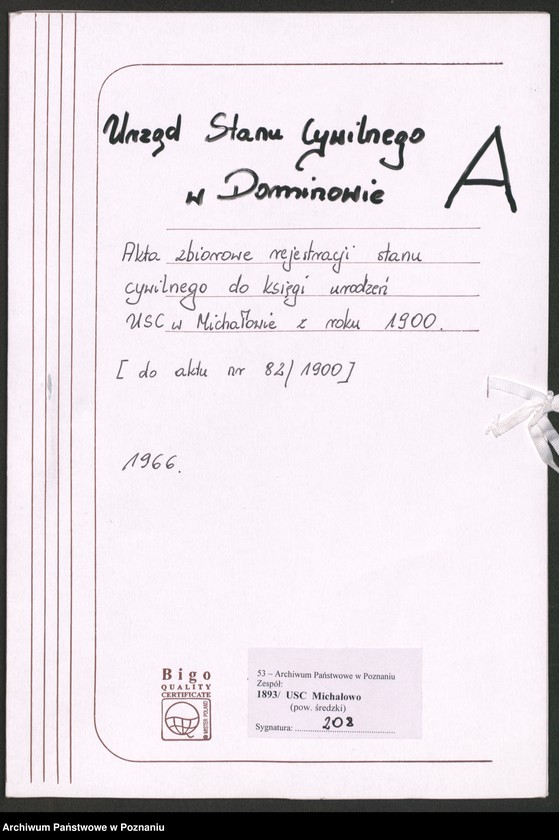 Urząd Stanu Cywilnego
w Dominowie
A
Akta zbiorowe rejestracji stanu
cywilnego do księgi urodzeń
USC w Michałowie z roku 1900.
[ do aktu nr 82/1900]
1966.
Bigo
QUALITY
CERTIFICATE
MISTER POLAND
53 – Archiwum Państwowe w Poznaniu
Zespół:
1893/ USC Michałowo
(pow. średzki)
Sygnatura: 208
Archiwum Państwowe w Poznaniu